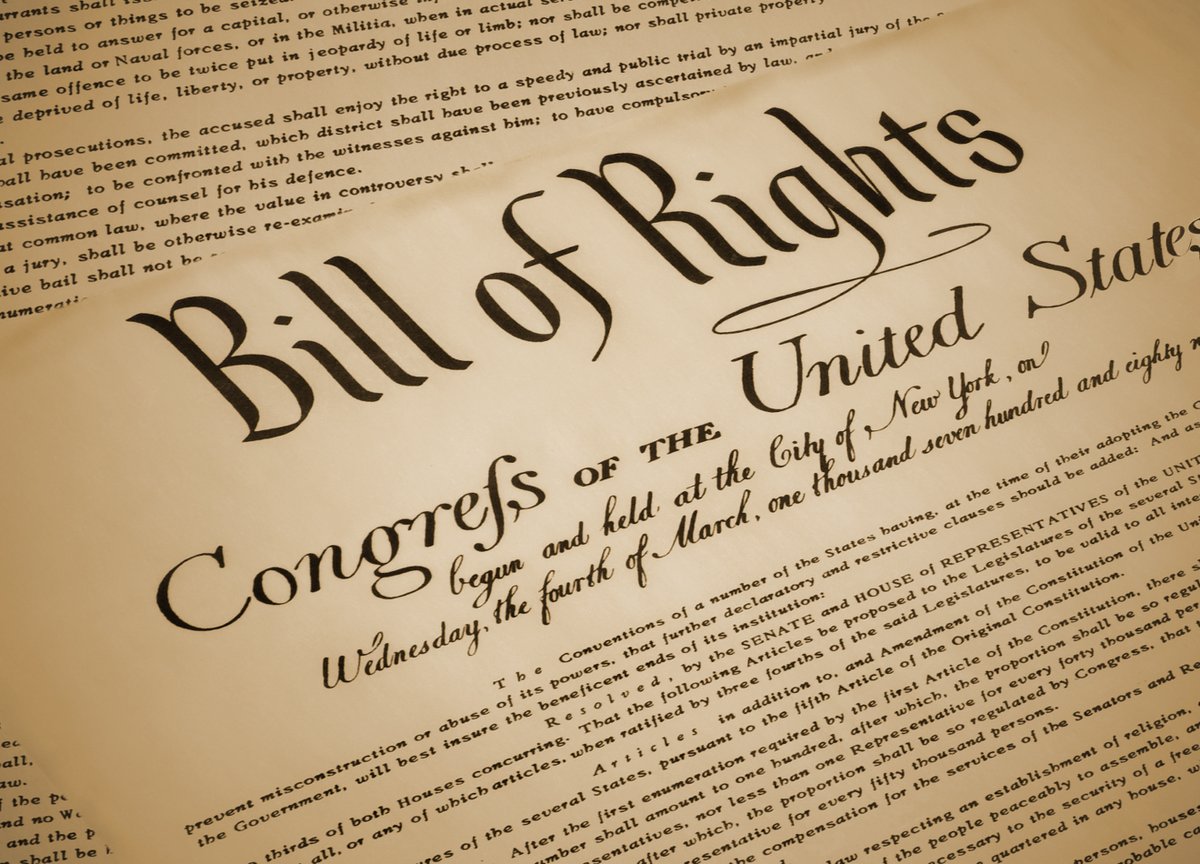 shall
persons or things to be seized.
be held to answer for a capital, or otherwise
the land or Naval forces, or in the Militia, when in actual
same offence to be twice put in jeopardy of life or limb; nor shall be
deprived of life, liberty, or property, without due process of law; nor shall private property
prosecutions, the accused shall enjoy the right to a speedy and public trial by an impartial jury of the
have been committed, which district shall have been previously ascertained by law,
to be confronted with the witnesses against him; to have
assistance of counsel for his defence.
at common law, where the value in controversy
a jury, shall be otherwise
bail shall not be
Bill of Rights
Congreſs OF THE United States
begun and held at the City of New York, on
Wednesday, the fourth of March, one thousand seven hundred and eighty
The Conventions of a number of the States having, at the time of their adopting the
prevent misconstruction or abuse of its powers, that further declaratory and restrictive clauses should be added: And as
the Government, will best insure the beneficent ends of its institution:
Resolved, by the SENATE and HOUSE of REPRESENTATIVES of the
thirds of both Houses concurring. That the following Articles be proposed to the Legislatures of the several
all, or any of which articles, when ratified by three fourths of the said Legislatures, to be valid to all
Articles in addition to, and Amendment of the Constitution of the
of the several States, pursuant to the fifth Article of the Original Constitution.
After the first enumeration required by the first Article of the Constitution, there
shall amount to one hundred, after which, the proportion shall be so
nor less than one Representative for every forty thousand
after which, the proportion shall be so regulated by Congress, that
for every fifty thousand persons.
the compensation for the services of the Senators and
respecting an establishment of religion,
of the people peaceably to assemble,
to the security of a
quartered in any house,
persons,
all,
law.
of the
and no
and the
shall be